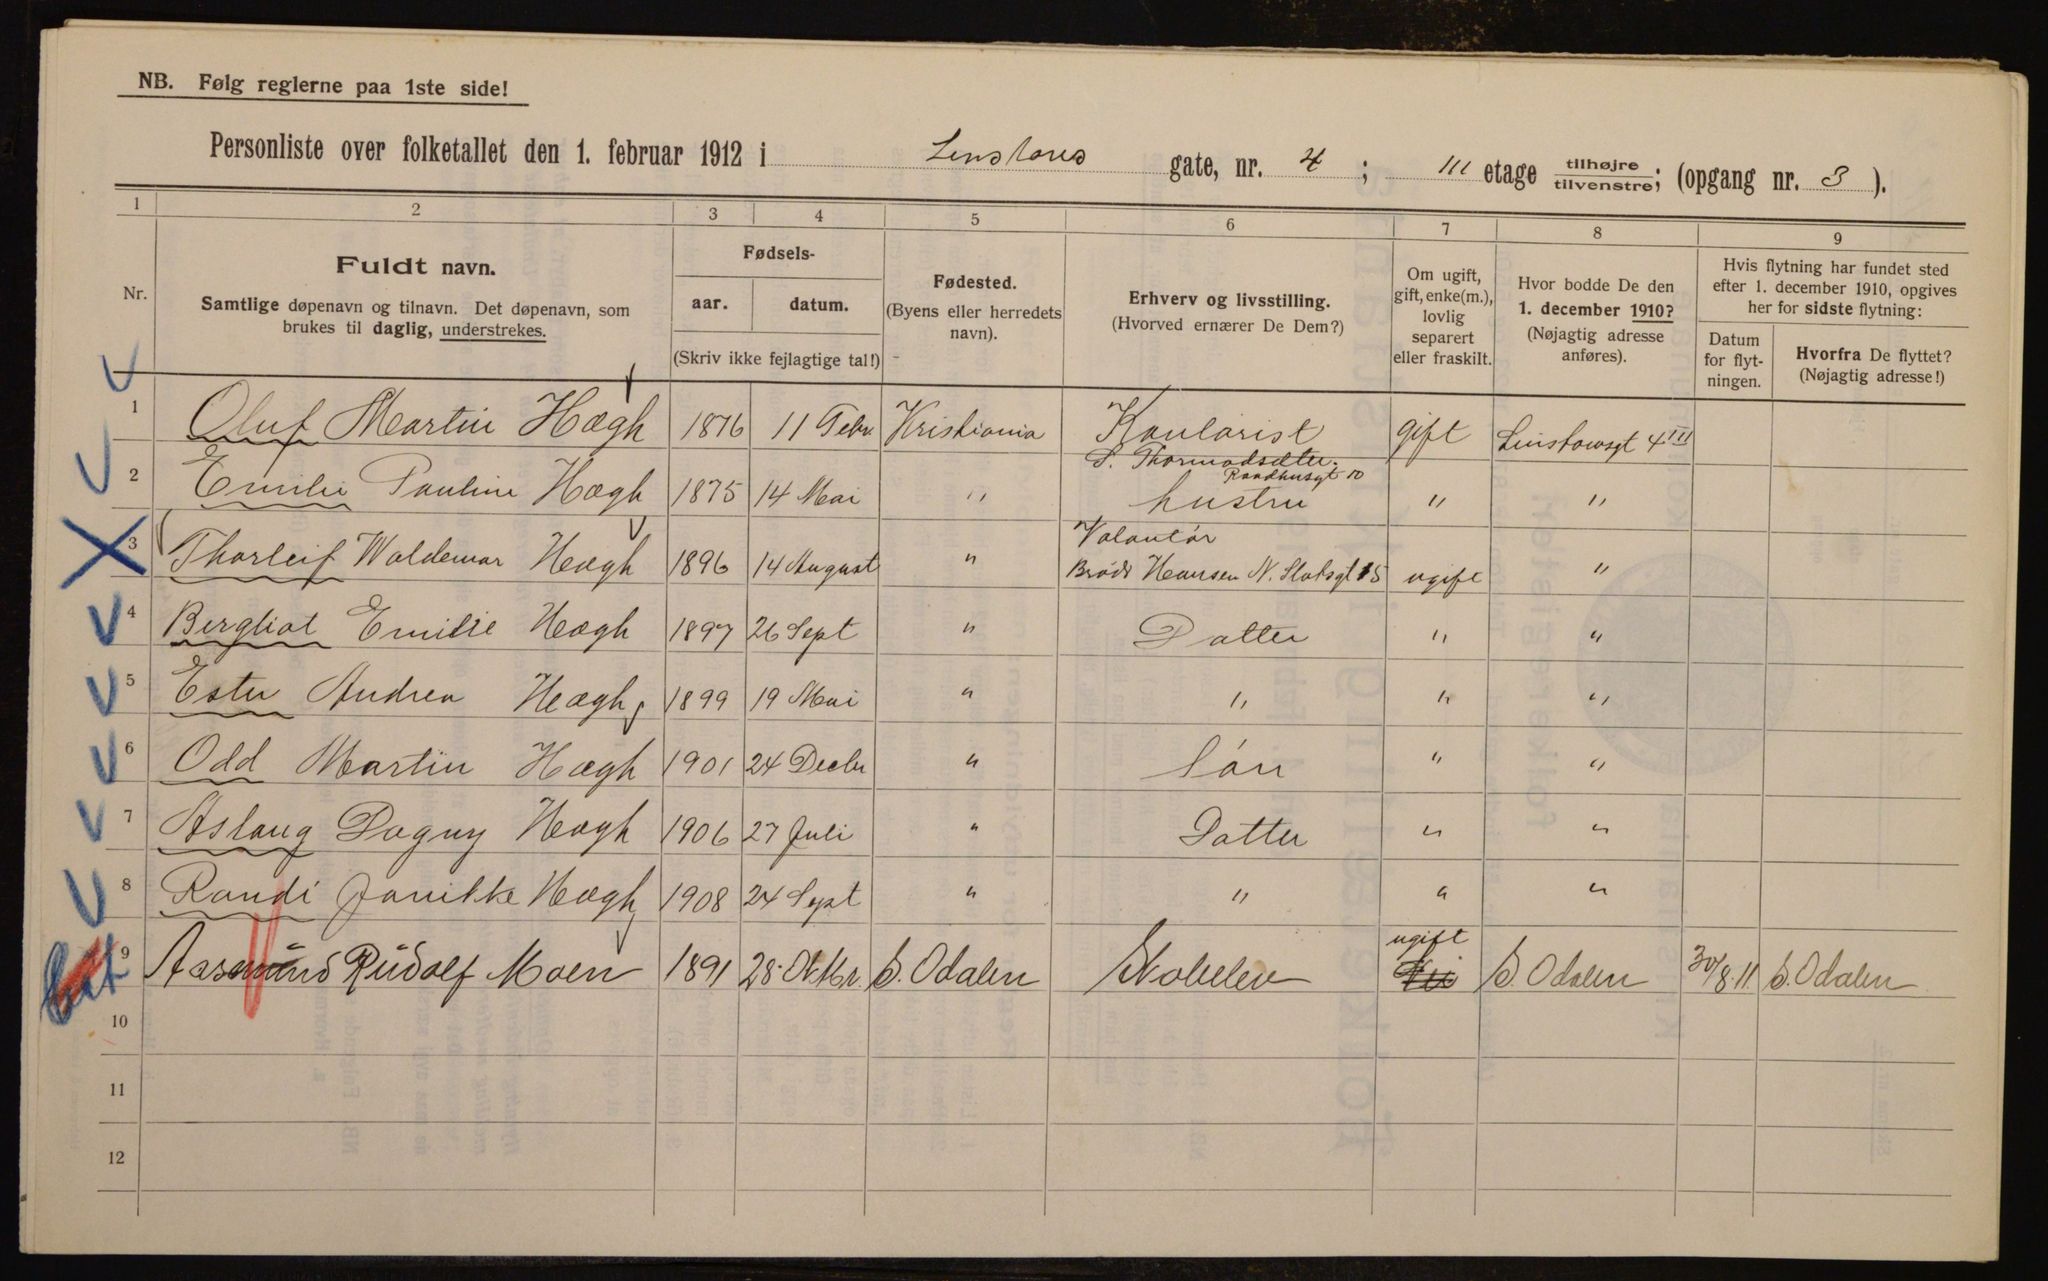 NB. Følg reglerne paa 1ste side!
Personliste over folketallet den 1. februar 1912 i Linstows gate, nr. 4; III etage tilhøjre/tilvenstre; (opgang nr. 3 ).
1 2 3 4 5 6 7 8 9
Nr.
Fuldt navn.
Samtlige døpenavn og tilnavn. Det døpenavn, som
brukes til daglig, understrekes.
Fødsels-
aar. datum.
(Skriv ikke fejlagtige tal!)
Fødested.
(Byens eller herredets
navn).
Erhverv og livsstilling.
(Hvorved ernærer De Dem?)
Om ugift,
gift, enke(m.),
lovlig
separert
eller fraskilt.
Hvor bodde De den
1. december 1910?
(Nøjagtig adresse
anføres).
Hvis flytning har fundet sted
efter 1. december 1910, opgives
her for sidste flytning:
Datum
for flyt-
ningen.
Hvorfra De flyttet?
(Nøjagtig adresse!)
1 Oluf Martin Høegh 1876 11 Febr. Kristiania Kontorist gift Linstowsgt 4 III
S. Thormodsæter.
Raadhusgt 10
2 Emilie Pauline Høegh 1875 14 Mai " hustru " "
3 Thorleif Waldemar Høegh 1896 14 August " Volontør
Brødr Hansen N. Slotsgt 15 ugift "
4 Bergliot Emilie Høegh 1897 26 Sept " Datter " "
5 Ester Andrea Høegh 1899 19 Mai " " " "
6 Odd Martin Høegh 1901 24 Decbr " Søn " "
7 Aslaug Dagny Høegh 1906 27 Juli " Datter " "
8 Randi Jonikke Høegh 1908 24 Sept " " " "
9 Aasmund Rudolf Moen 1891 28 Oktbr. S. Odalen ugift S. Odalen 30/8.11. S. Odalen
10
11
12